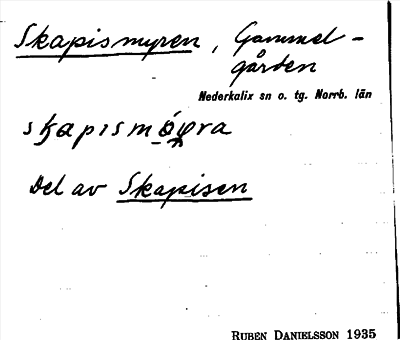 Skapismyren, Gammel-
gården
Nederkalix sn o. tg. Norrb. län
Del av Skapisen
RUBEN DANIELSSON 1935